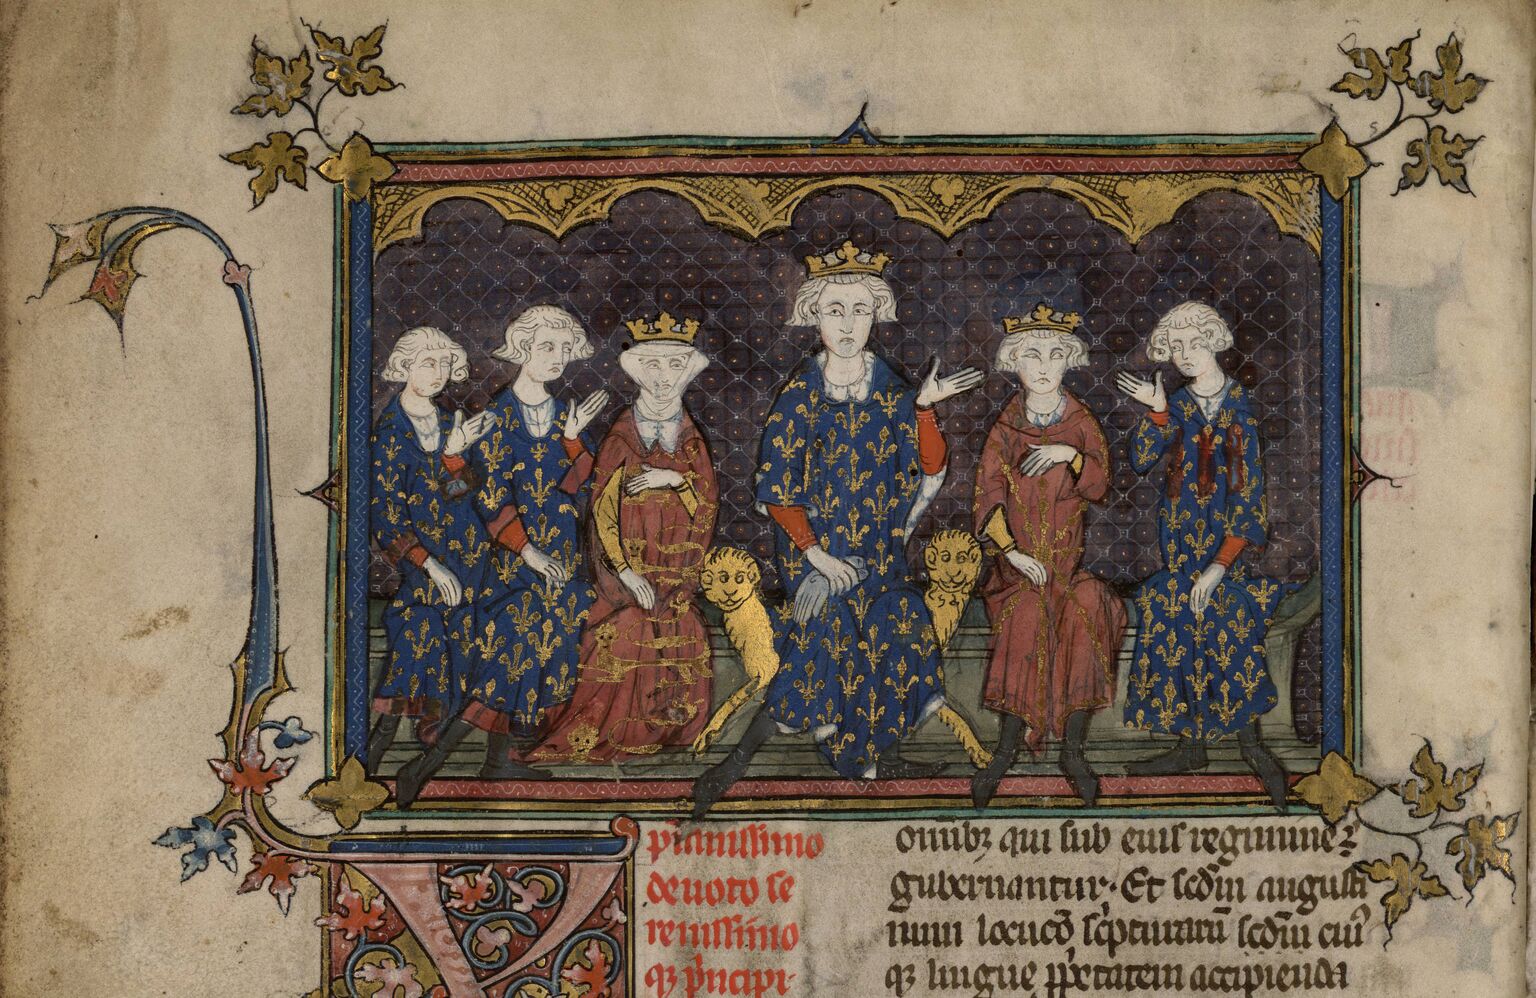 pianissimo
deuoto se
renissimo
q̨ p̃ncipi·
omĩbꝫ qui sub eius regimine ⁊
gubernantur· Et scd̃m augusti
num locuc̃o sc̃pturarũ scd̃m cuiꝰ
q̨ lingue ꝓp̃etatem accipienda